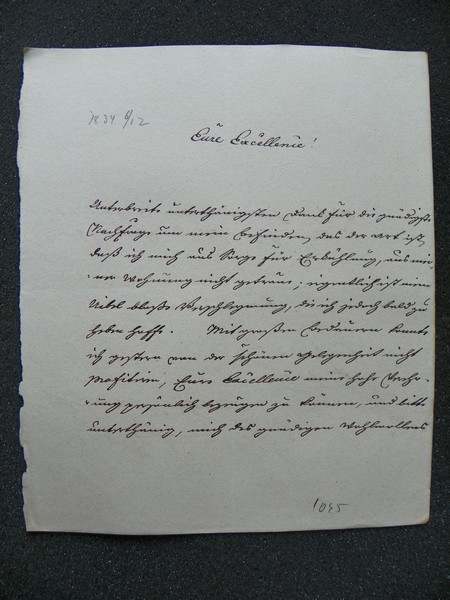 1834 6/12
Eure Excellence!
Unterbreite unterthänigsten Dank für die gnädigste
Nachfrage um mein Befinden, das der Art ist,
daß ich mich aus Sorge für Erkühlung, aus mei-
ner Wohnung nicht getraue; eigentlich ist mein
Uibel bloße Verschleymung, die ich jedoch bald zu
heben hoffe. Mit großen Bedauern konnte
ich gestern von der schönen Gelegenheit nicht
profitiren, Eure Excellence meine hohe Verehr-
ung persönlich bezeugen zu können, und bitte
unterthänig, mich des gnädigen Wohlwollens
1045